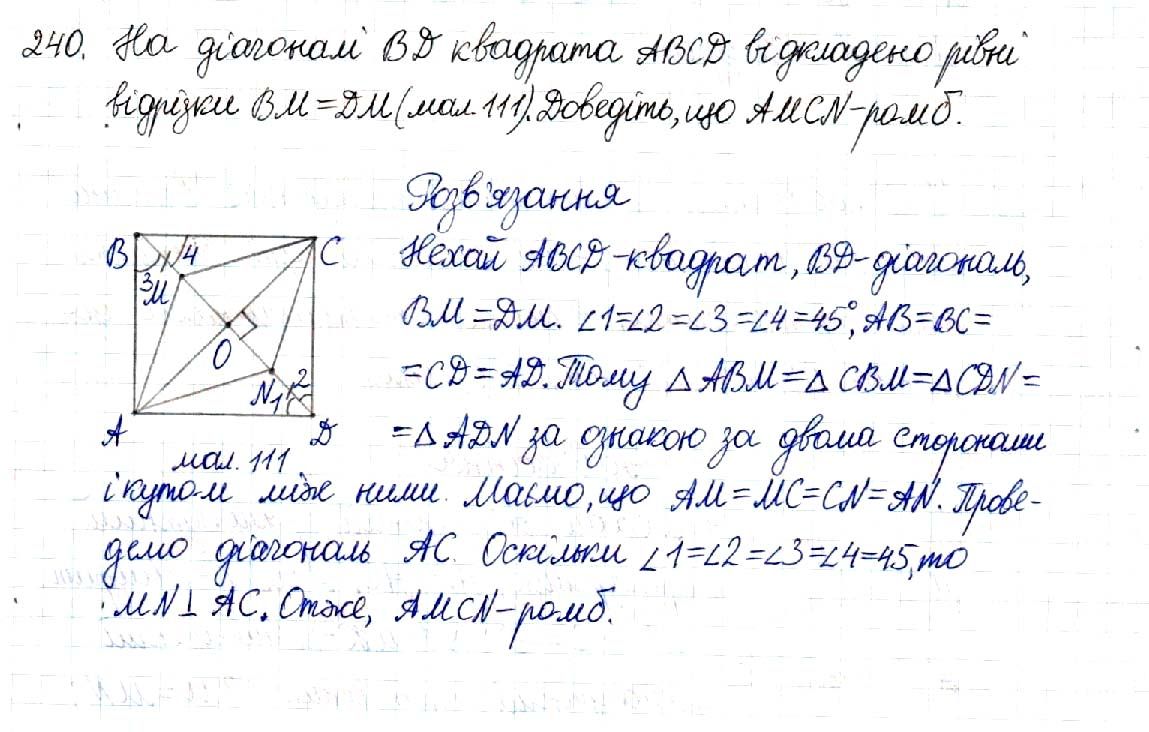 240. На діагоналі BD квадрата ABCD відкладено рівні
відрізки BM=DM (мал.111). Доведіть, що AMCN-ромб.
Розв'язання
Нехай ABCD-квадрат, BD-діагональ,
BM=DM. ∠1=∠2=∠3=∠4=45°, AB=BC=
=CD=AD. Тому △ABM=△CBM=△CDN=
=△ADN за ознакою за двома сторонами
і кутом між ними. Маємо, що AM=MC=CN=AN. Прове-
демо діагональ AC. Оскільки ∠1=∠2=∠3=∠4=45, то
MN⊥AC. Отже, AMCN-ромб.
B 4 C
3 M
O
N 1 2
A D
мал. 111